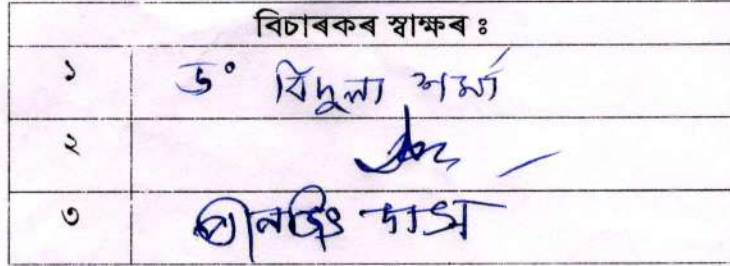 বিচাৰকৰ স্বাক্ষৰ ঃ
১ ড° বিদুলা শৰ্মা
২
৩ দাস